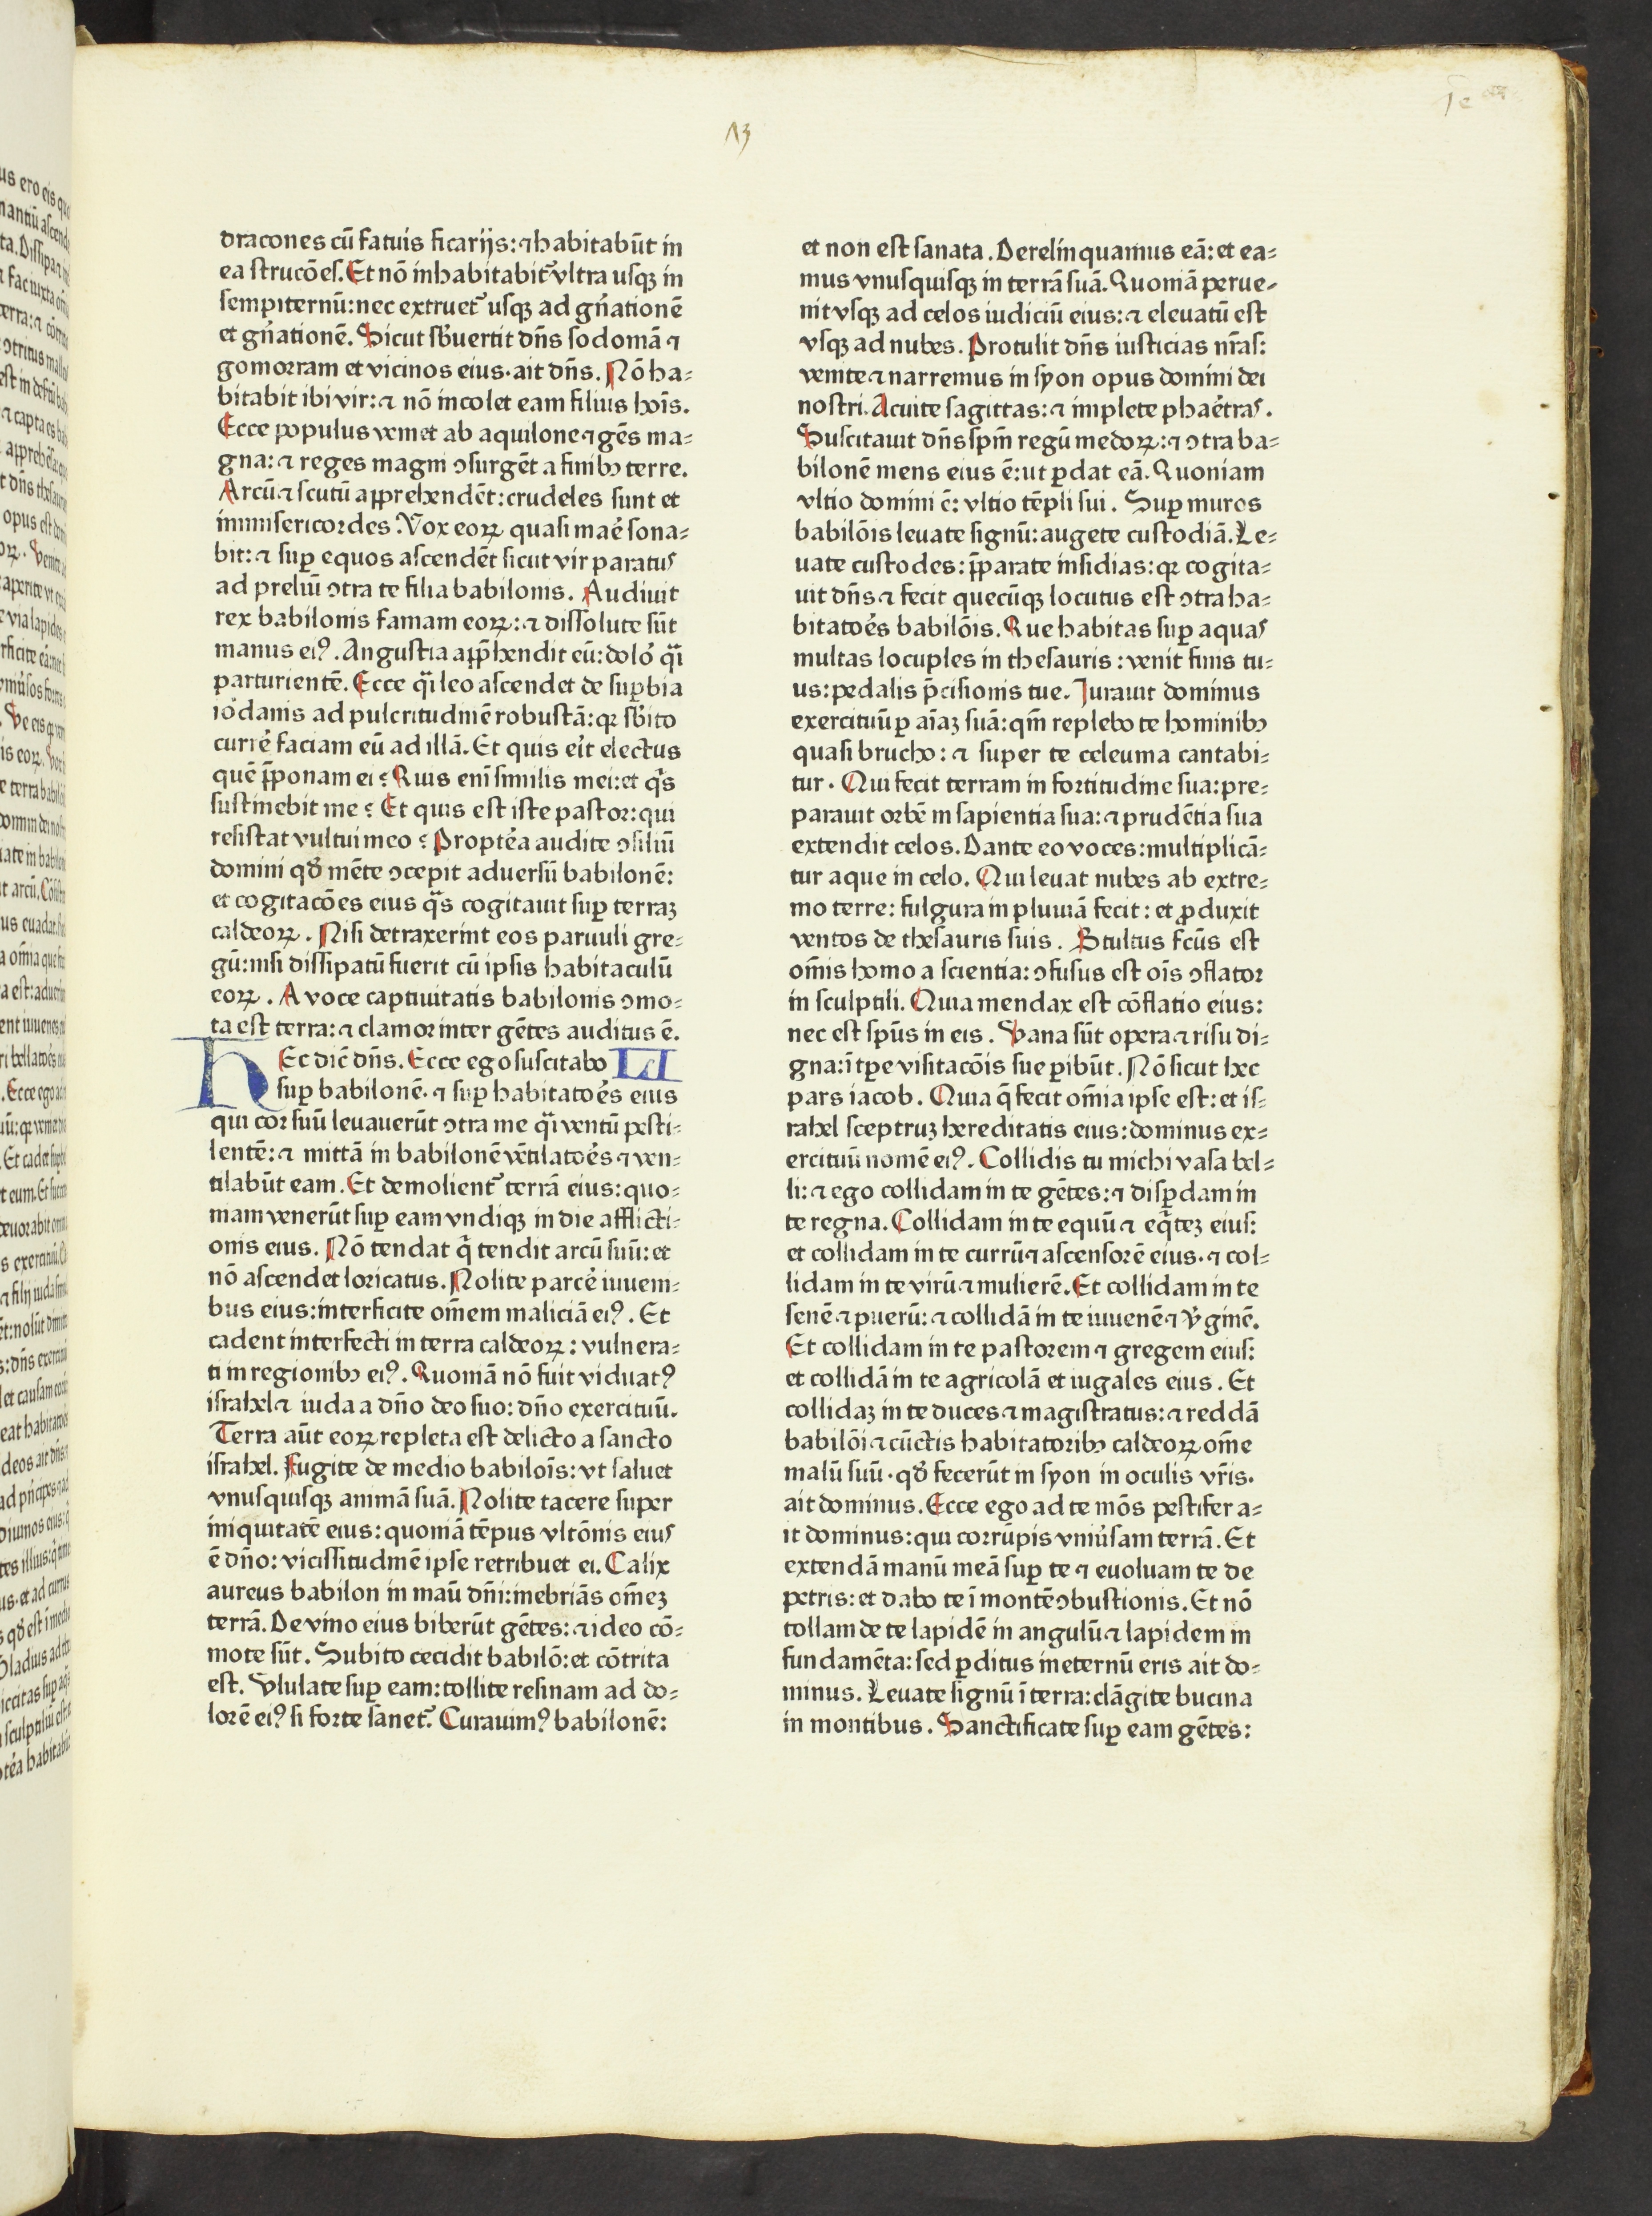 13
dracones cū fatuis ficarijs: ⁊ habitabūt in
ea strucōes. Et nō inhabitabit᷑ vltra usqꝫ in
sempiternū: nec extruet᷑ usqꝫ ad gñationē
et gñationē. Sicut sb̾uertit dñs sodomā ⁊
gomorram et vicinos eius. ait dñs. Nō ha⸗
bitabit ibi vir: ⁊ nō incolet eam filius hoīs.
Ecce populus veniet ab aquilone ⁊ gēs ma⸗
gna: ⁊ reges magni ɔsurgēt a finibꝫ terre.
Arcū ⁊ scutū apprehendēt: crudeles sunt et
inmisericordes. Vox eoꝝ quasi maē sona⸗
bit: ⁊ suꝑ equos ascendēt sicut vir paratus
ad preliū ɔtra te filia babilonis. Audiuit
rex babilonis famam eoꝝ: ⁊ dissolute sūt
manus eiꝰ. Angustia app̄hendit eū: dolo᷑ qͣi
parturientē. Ecce qͣi leo ascendet de suꝑbia
io᷑danis ad pulcritudinē robustā: qꝛ sb̾ito
curre᷑ faciam eū ad illā. Et quis ei᷑t electus
quē p̄ponam ei? Quis eni similis mei: et qͥs
sustinebit me? Et quis est iste pastor: qui
resistat vultui meo? Propte᷑a audite ɔsiliū
domini qd̾ mēte ɔcepit aduersū babilonē:
et cogitacōes eius qͣs cogitauit suꝑ terraꝫ
caldeoꝝ. Nisi detraxerint eos paruuli gre⸗
gū: nisi dissipatū fuerit cū ipsis habitaculū
eoꝝ. A voce captiuitatis babilonis ɔmo⸗
ta est terra: ⁊ clamor inter gētes auditus ē.
HEc dic̄ dñs. Ecce ego suscitabo LI
suꝑ babilonē. ⁊ suꝑ habitatoēs eius
qui cor suū leuauerūt ɔtra me qͣi ventū pesti⸗
lentē: ⁊ mittā in babilonē vētilatoēs ⁊ ven⸗
tilabūt eam. Et demolient᷑ terrā eius: quo⸗
niam venerūt suꝑ eam vndiqꝫ in die afflicti⸗
onis eius. Nō tendat q̄ tendit arcū suū: et
nō ascendet loricatus. Nolite parce᷑ iuueni⸗
bus eius: interficite om̄em maliciā eiꝰ. Et
cadent interfecti in terra caldeoꝝ: vulnera⸗
ti in regionibꝫ eiꝰ. Quoniā nō fuit viduatꝰ
israhel ⁊ iuda a dño deo suo: dño exercituū.
Terra aūt eoꝝ repleta est delicto a sancto
israhel. Fugite de medio babiloīs: vt saluet
vnusquisqꝫ animā suā. Nolite tacere super
iniquitatē eius: quoniā tēpus vltōnis eius
ē dño: vicissitudinē ipse retribuet ei. Calix
aureus babilon in maū dñi: inebriās om̄eꝫ
terrā. De vino eius biberūt gētes: ⁊ ideo cō⸗
mote sūt. Subito cecidit babilō: et cōtrita
est. Vlulate suꝑ eam: tollite resinam ad do⸗
lorē eiꝰ si forte sānet᷑. Curauimꝰ babilonē:
et non est sanata. Derelinquamus eā: et ea⸗
mus vnusquisqꝫ in terrā suā. Quoniā perue⸗
nit vsqꝫ ad celos iudiciū eius: ⁊ eleuatū est
vsqꝫ ad nubes. Protulit dñs iusticias nr̄as:
venite ⁊ narremus in syon opus domini dei
nostri. Acuite sagittas: ⁊ implete phae᷑tras.
Suscitauit dñs spm̄ regū medoꝝ: ⁊ ɔtra ba⸗
bilonē mens eius ē: ut ꝑdat eā. Quoniam
vltio domini ē: vltio tēpli sui. Suꝑ muros
babilōis leuate signū: augete custodiā. Le⸗
uate custodes: p̄parate insidias: qꝛ cogita⸗
uit dñs ⁊ fecit quecūqꝫ locutus est ɔtra ha⸗
bitatoēs babilōis. Que habitas suꝑ aquas
multas locuples in thesauris: venit finis tu⸗
us: pedalis p̄cisionis tue. Iurauit dominus
exercituū ꝑ aīaꝫ suā: qm̄ replebo te hominibꝫ
quasi brucho: ⁊ super te celeuma cantabi⸗
tur. Qui fecit terram in fortitudine sua: pre⸗
parauit orbē in sapientia sua: ⁊ prudētia sua
extendit celos. Dante eo voces: multiplicā⸗
tur aque in celo. Qui leuat nubes ab extre⸗
mo terre: fulgura in pluuiā fecit: et ꝓduxit
ventos de thesauris suis. Stultus fc̄us est
om̄is homo a scientia: ɔfusus est oīs ɔflator
in sculptili. Quia mendax est cōflatio eius:
nec est spūs in eis. Vana sūt opera ⁊ risu di⸗
gna: ī tꝑe visitacōis sue ꝑibūt. Nō sicut hec
pars iacob. Quia q̄ fecit om̄ia ipse est: et is⸗
rahel sceptruꝫ hereditatis eius: dominus ex⸗
ercituū nomē eiꝰ. Collidis tu michi vasa bel⸗
li: ⁊ ego collidam in te gētes: ⁊ disꝑdam in
te regna. Collidam in te equū ⁊ eq̄teꝫ eius:
et collidam in te currū ⁊ ascensorē eius. ⁊ col⸗
lidam in te virū ⁊ mulierē. Et collidam in te
senē ⁊ puerū: ⁊ collidā in te iuuenē ⁊ v᷑ginē.
Et collidam in te pastorem ⁊ gregem eius:
et collidā in te agricolā et iugales eius. Et
collidaꝫ in te duces ⁊ magistratus: ⁊ reddā
babilōi ⁊ cūctis habitatoribꝫ caldeoꝝ om̄e
malū suū. qd̾ fecerūt in syon in oculis vr̄is.
ait dominus. Ecce ego ad te mōs pestifer a⸗
it dominus: qui corrūpis vniu᷑sam terrā. Et
extendā manū meā suꝑ te ⁊ euoluam te de
petris: et dabo te ī montē ɔbustionis. Et nō
tollam de te lapidē in angulū ⁊ lapidem in
fundamēta: sed ꝑditus ineternū eris ait do⸗
minus. Leuate signū ī terra: clāgite bucina
in montibus. Sanctificate suꝑ eam gētes:
2